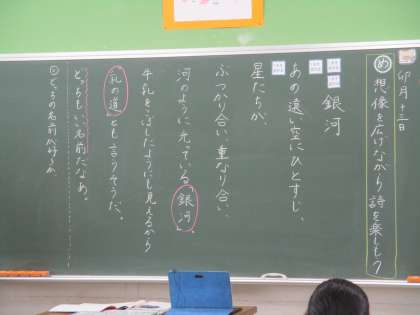 卯月十三日
め 想像を広げながら詩を楽しもう
銀河
あの遠い空にひとすじ、
星たちが、
ぶつかり合い、重なり合い、
河のように光っている「銀河」
牛乳をこぼしたようにも見えるから
「乳の道」とも言うそうだ。
どっちもいい名前だなあ。
どちらの名前が好きか